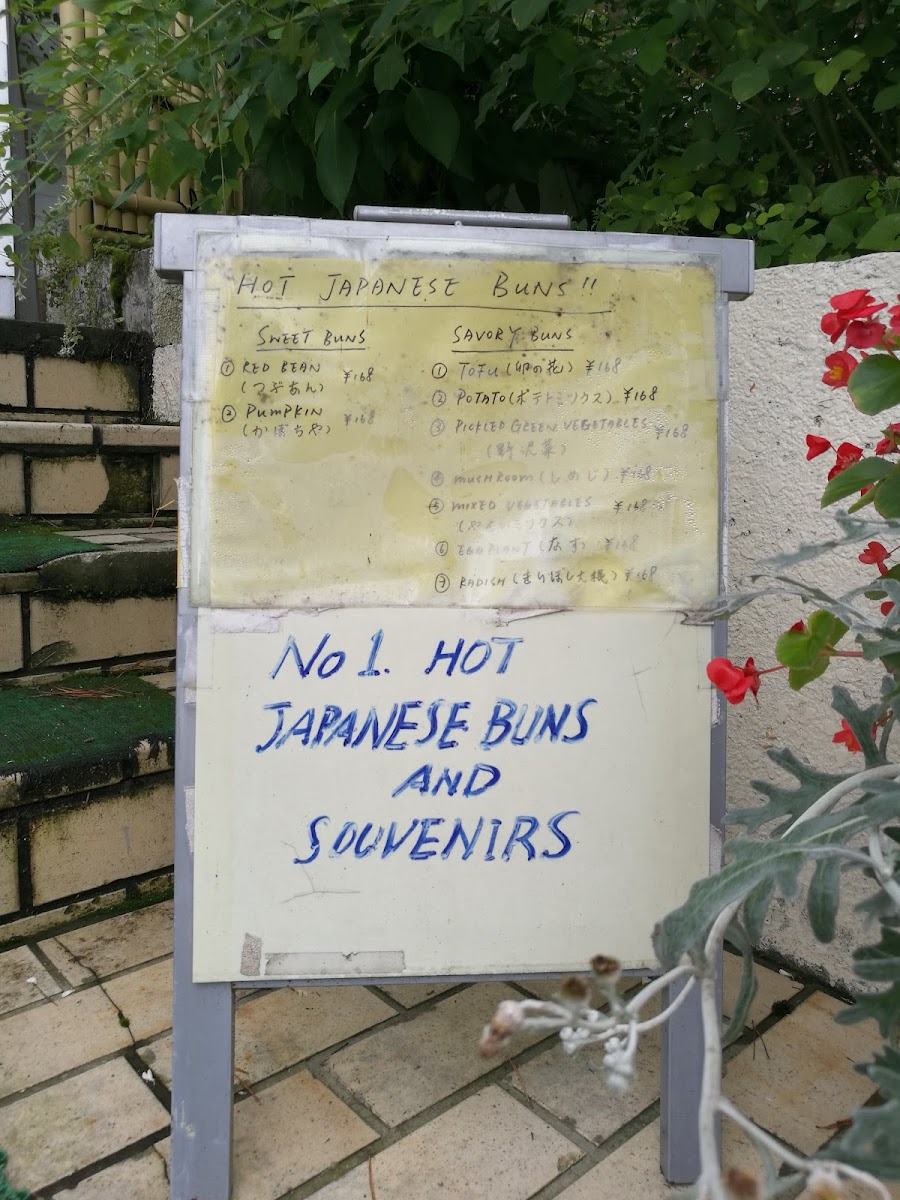 HOT JAPANESE BUNS!!
SWEET BUNS
① RED BEAN ¥168
(つぶあん)
② PUMPKIN ¥168
(かぼちゃ)
SAVORY BUNS
① TOFU (卯の花) ¥168
② POTATO (ポテトミックス) ¥168
③ PICKLED GREEN VEGETABLES ¥168
(野沢菜)
④ MUSHROOM (しめじ) ¥168
⑤ MIXED VEGETABLES ¥168
⑥ EGGPLANT (なす) ¥168
⑦ RADISH (きりぼし大根) ¥168
No 1. HOT
JAPANESE BUNS
AND
SOUVENIRS